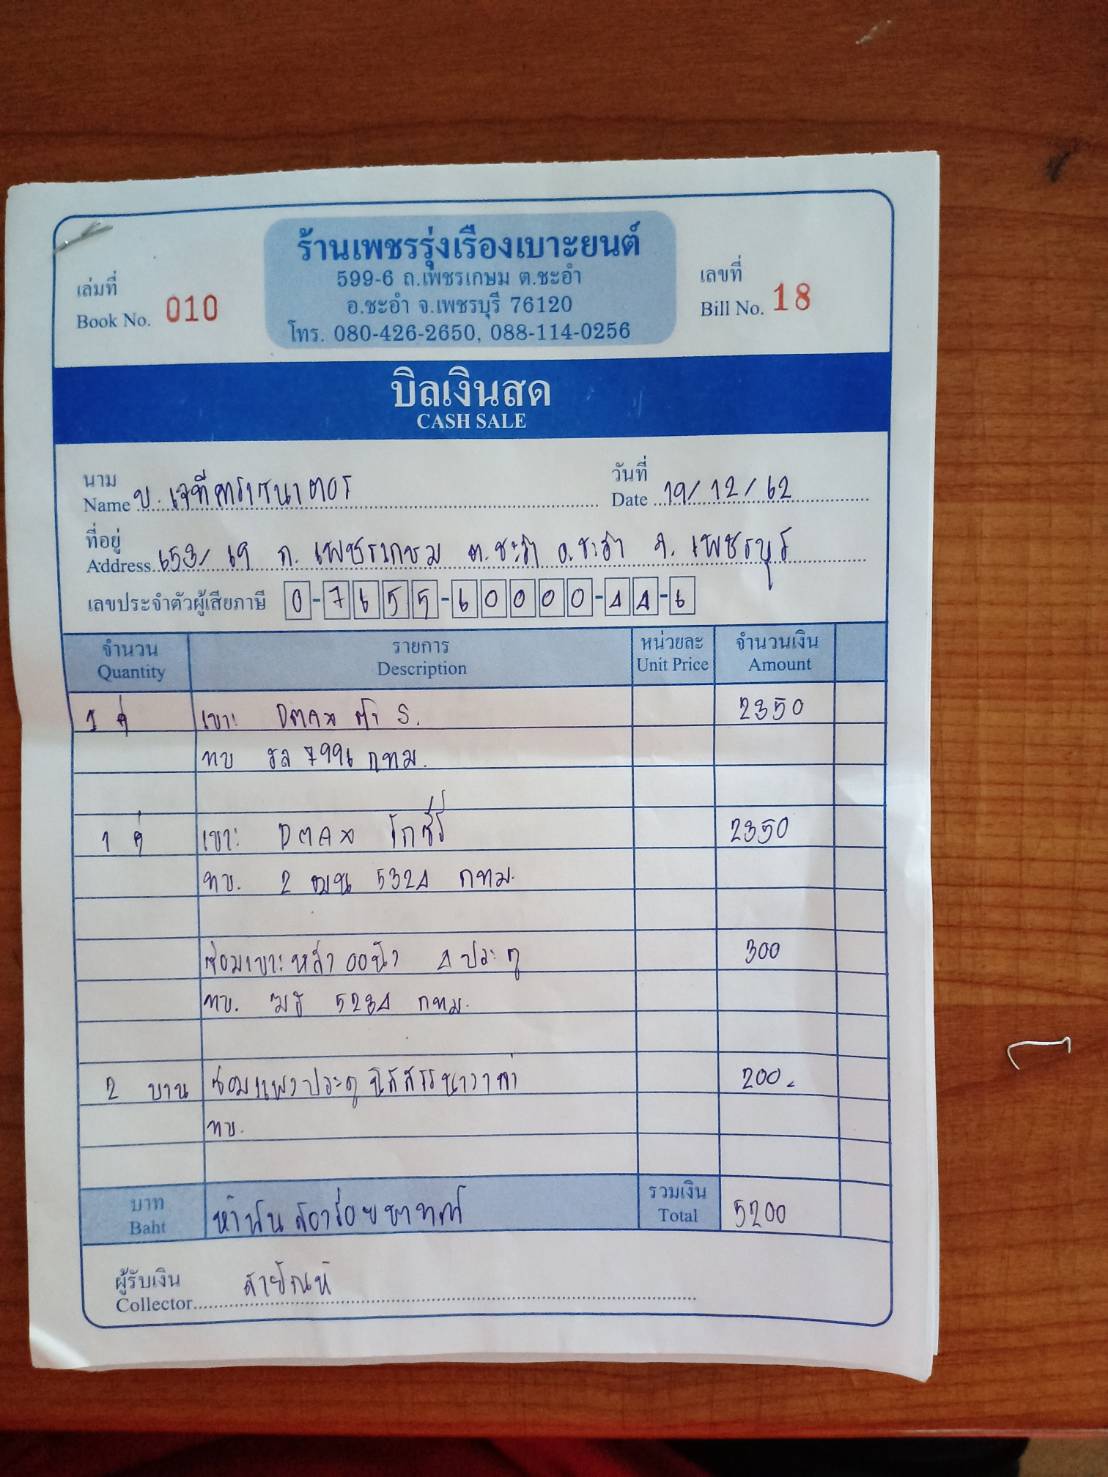 ร้านเพชรรุ่งเรืองเบาะยนต์
599-6 ถ.เพชรเกษม ต.ชะอำ
อ.ชะอำ จ.เพชรบุรี 76120
โทร. 080-426-2650, 088-114-0256
เล่มที่
Book No. 010
เลขที่
Bill No. 18
บิลเงินสด
CASH SALE
นาม
Name บ. เจที
วันที่
Date 19/12/62
ที่อยู่
Address 653/69 ถ. เพชรเกษม ต.ชะอำ อ.ชะอำ จ. เพชรบุรี
เลขประจำตัวผู้เสียภาษี 0-7655-60000-44-6
จำนวน รายการ หน่วยละ จำนวนเงิน
Quantity Description Unit Price Amount
1 คู่ เบาะ DMAX ตัว S. 2350
ทบ 7996 กทม.
1 คู่ เบาะ DMAX 2350
ทบ. 2 ฒน 5324 กทม.
ซ่อมเบาะหลัง 4 ประตู 300
ทบ. 5234 กทม.
2 บาน ซ่อมแผงประตู นิสสัน นาวาร่า 200.
ทบ.
บาท
Baht ห้าพันสองร้อยบาทถ้วน
รวมเงิน
Total 5200
ผู้รับเงิน
Collector สายัณห์